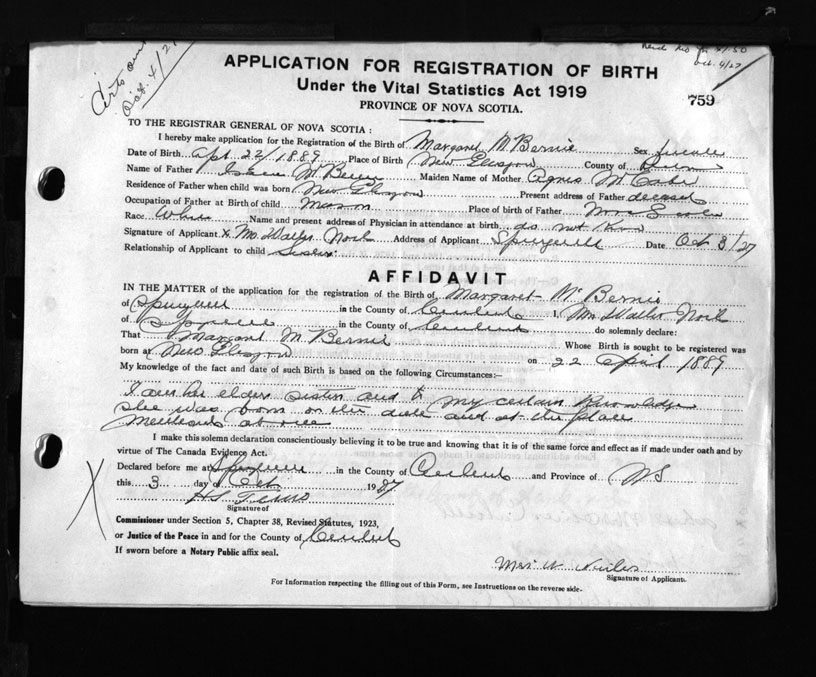 Oct. 4/27
APPLICATION FOR REGISTRATION OF BIRTH
Under the Vital Statistics Act 1919
PROVINCE OF NOVA SCOTIA.
759
TO THE REGISTRAR GENERAL OF NOVA SCOTIA :
I hereby make application for the Registration of the Birth of Margaret McBernie Sex female
Date of Birth Apr. 22 / 1889 Place of Birth New Glasgow County of
Name of Father Maiden Name of Mother Agnes McCabe
Residence of Father when child was born New Glasgow Present address of Father deceased
Occupation of Father at Birth of child Mason Place of birth of Father Nova Scotia
Race White Name and present address of Physician in attendance at birth do not know
Signature of Applicant X Mrs Walter Address of Applicant Springhill Date Oct 3/27
Relationship of Applicant to child sister
AFFIDAVIT
IN THE MATTER of the application for the registration of the Birth of Margaret McBernie
of Springhill in the County of Cumberland I, Mrs Walter
of in the County of Cumberland do solemnly declare:
That Margaret McBernie Whose Birth is sought to be registered was
born at New Glasgow on 22 April 1889
My knowledge of the fact and date of such Birth is based on the following Circumstances:—
I am her elder sister and to my certain knowledge
she was born on the date and at the place
mentioned above
I make this solemn declaration conscientiously believing it to be true and knowing that it is of the same force and effect as if made under oath and by
virtue of The Canada Evidence Act.
Declared before me at Springhill in the County of Cumberland and Province of NS
this 3 day of Oct 1927
Signature of
Commissioner under Section 5, Chapter 38, Revised Statutes, 1923,
or Justice of the Peace in and for the County of Cumberland
If sworn before a Notary Public affix seal.
Mrs W
Signature of Applicant.
For Information respecting the filling out of this Form, see Instructions on the reverse side.